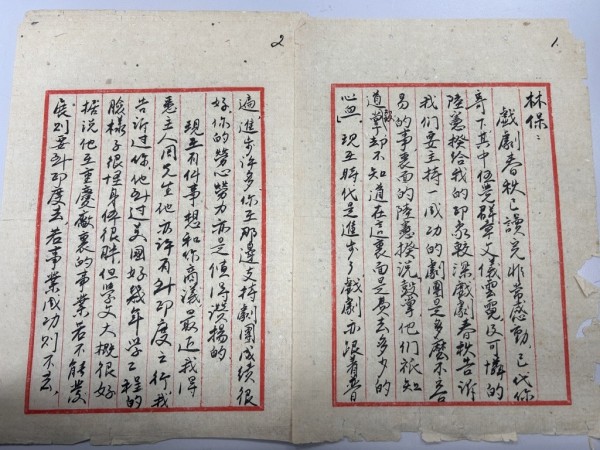 1.
林保：
戲劇春秋已讀完非常感動已代你
寄下其中伍覺群草文儀雲霓及可憐的
陸憲揆給我的印象較深戲劇春秋告訴
我們要主持一成功的劇團是多麼不容
易的事裏面的陸憲揆說觀眾他們祇知
道鼓掌却不知道在這裏面是費去多少的
心血，現在時代是進步了戲劇亦跟着普
2
遍，進步許多你在那邊支持劇團成績很
好你的勞心勞力亦是值得讚揚的
現在有件事想和你商議最近我得
悉主人周先生他亦许有到印度之行我
告訴过你他到过美國好幾年學工程的
臉樣子很怪身体很胖但學文大概很好
据说他在重慶廠裏的事業若不能發
展則要到印度去，若事業成功則不去，